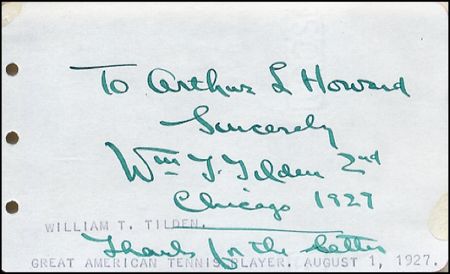 To Arthur L Howard
Sincerely
Wm T. Tilden 2nd
Chicago 1927
WILLIAM T. TILDEN.
Thanks for the letter
GREAT AMERICAN TENNIS PLAYER. AUGUST 1, 1927.